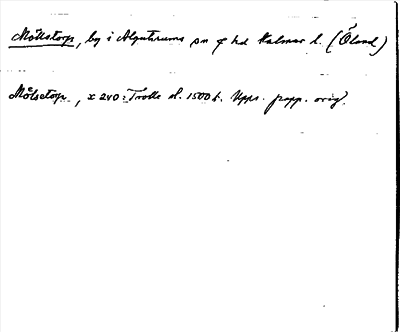 Möllstorp, by i Algutsrums sn o hd Kalmar l. (Öland)
Mölsetorp, x 240: Trolle sl. 1500 t. Upps. papp. orig.